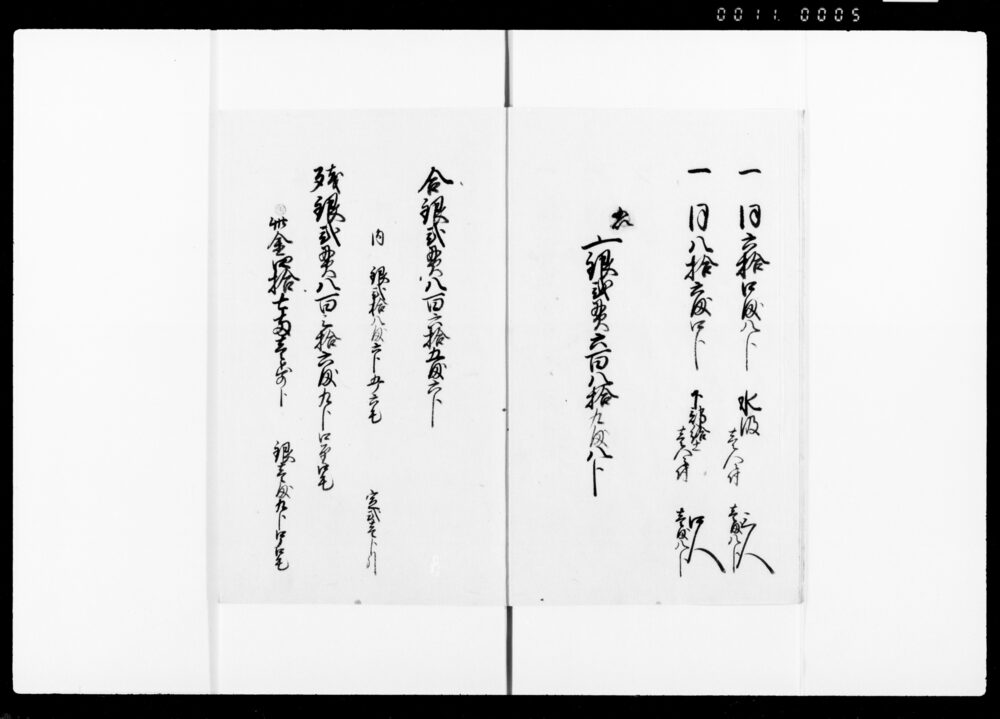 0011 0005
一 同六拾四匁八分 水汲 三人
壱人付
壱匁八分
一 同八拾六匁四分 下部給 四人
壱人付
壱匁八分
〆銀弐貫六百八拾九匁八分
合銀弐貫八百六拾五匁六分
内 銀弐拾八匁六分五六毛 壱分引
残銀弐貫八百三拾六匁九分四厘四毛
此金四拾七両壱歩ト 銀壱匁九分四厘四毛